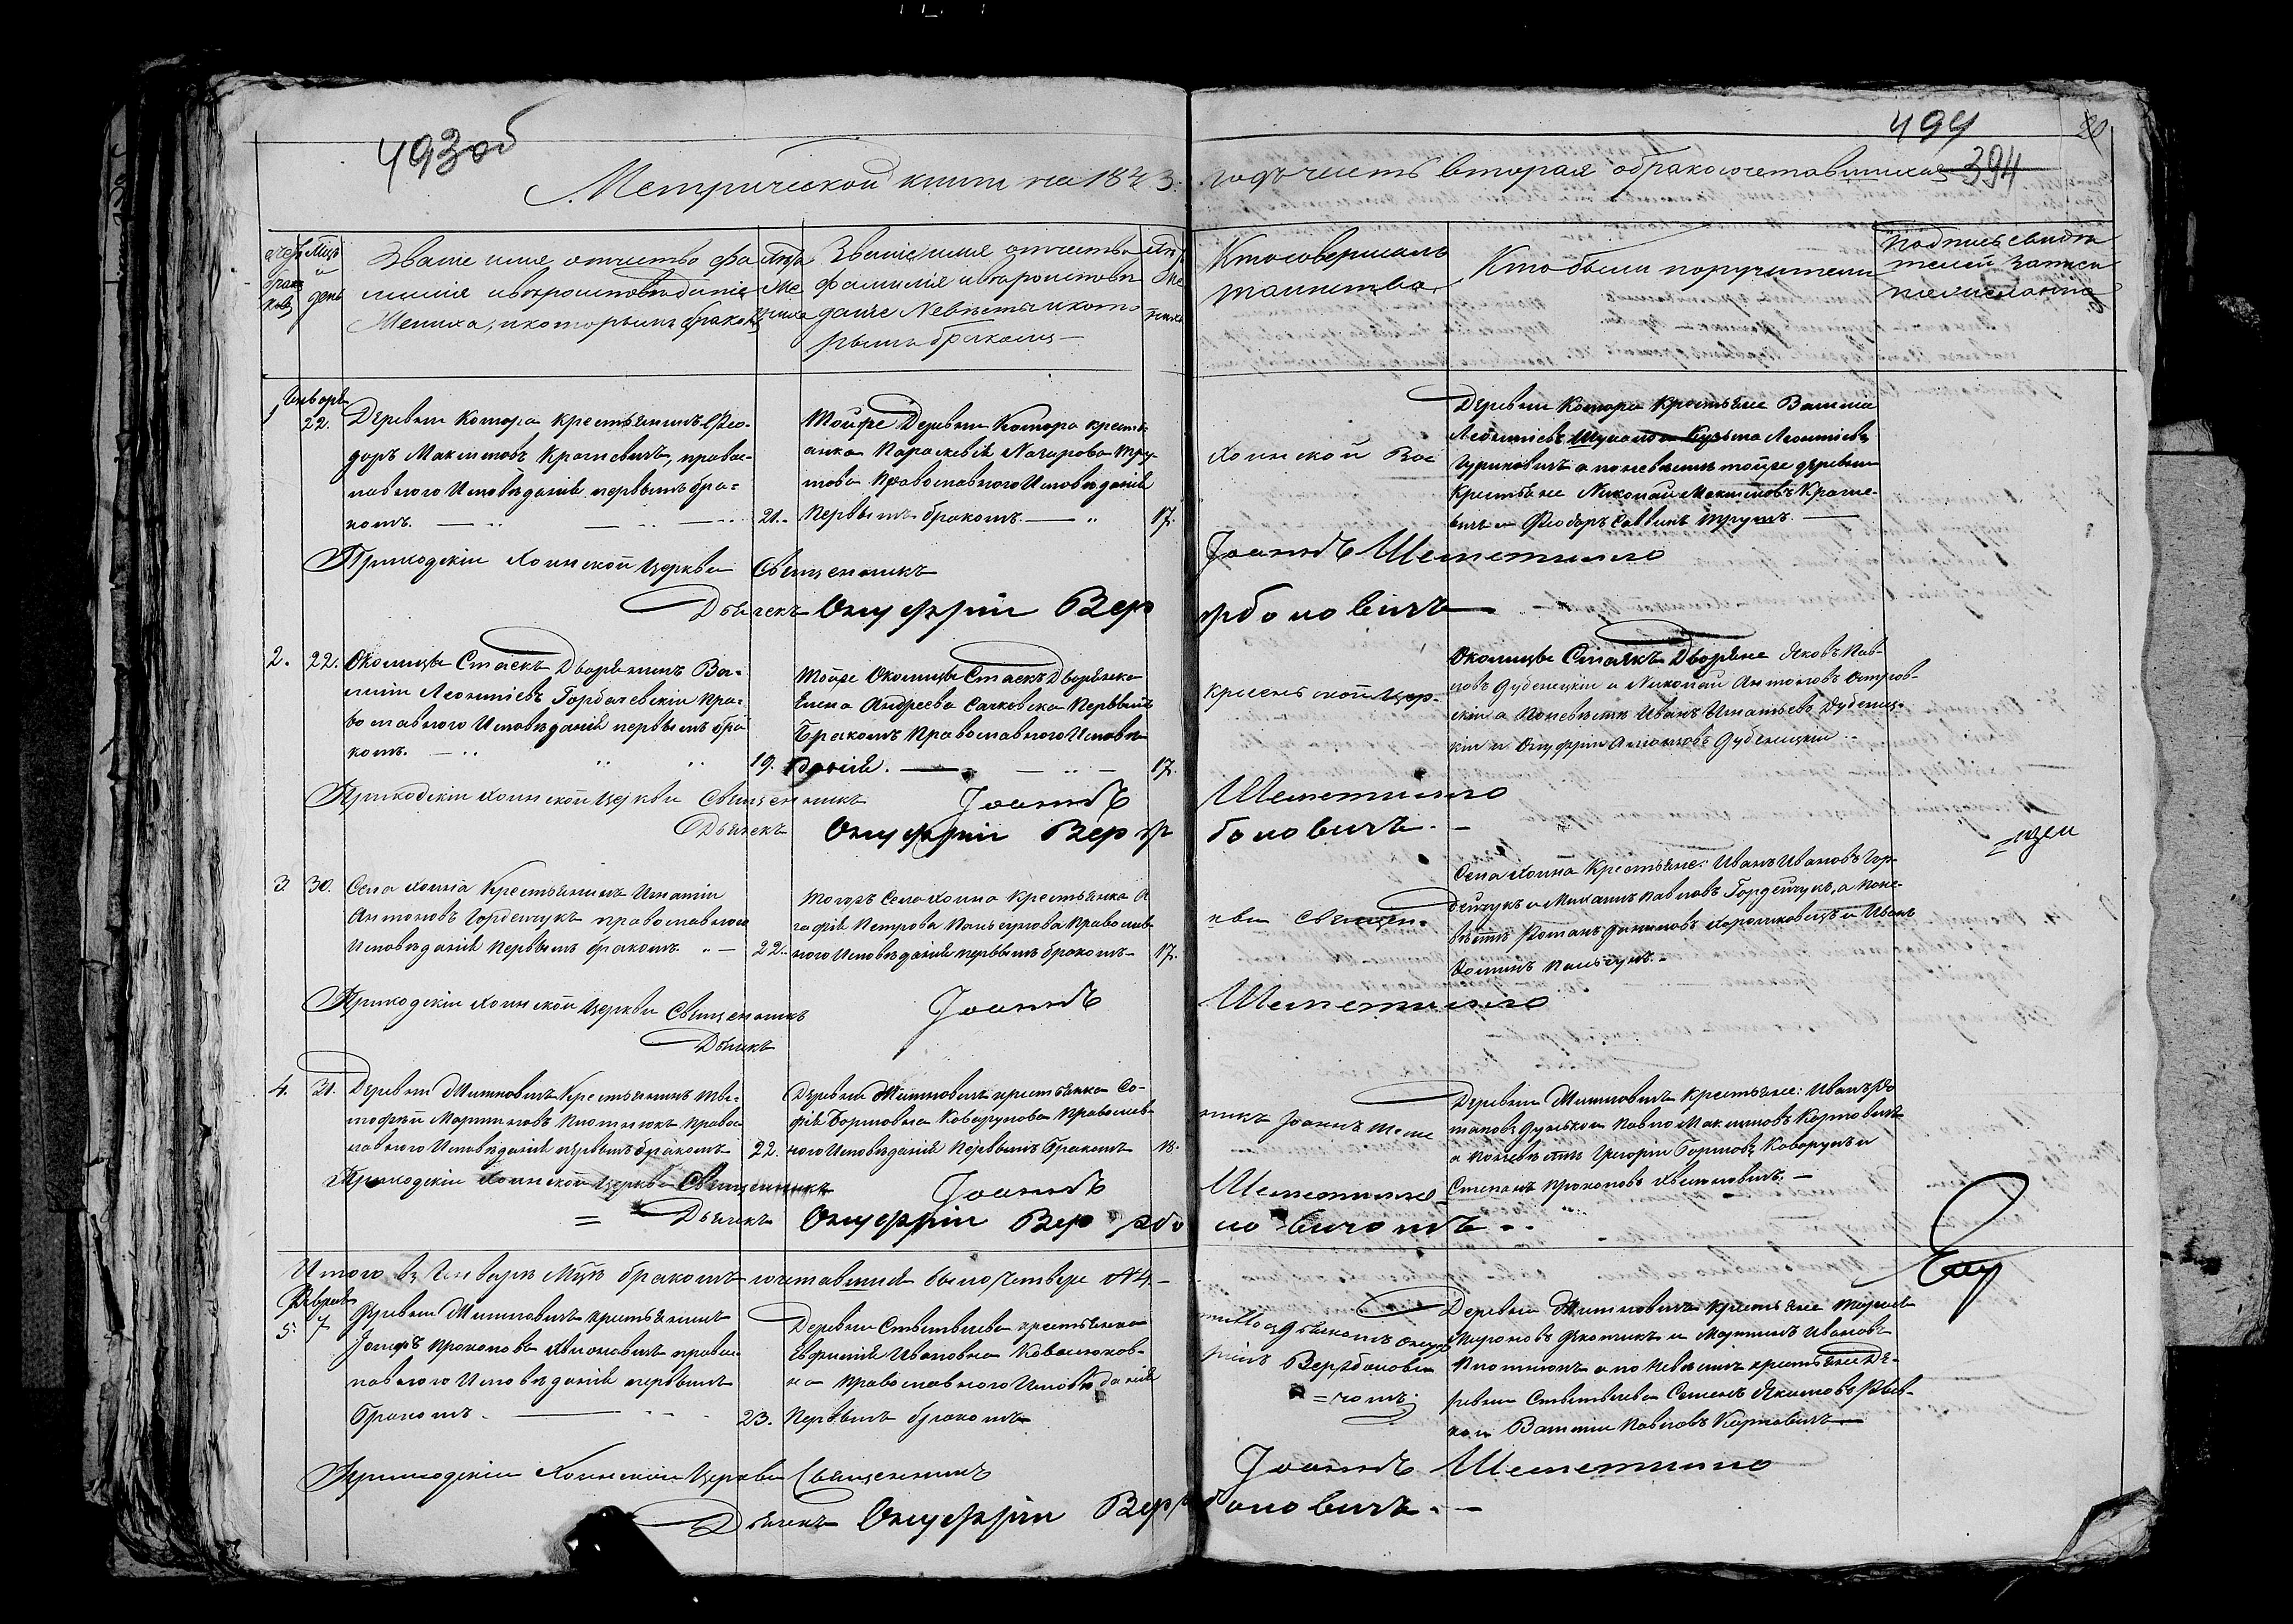 493об
494
20
394
Метрической книги на 1843. годъ часть вторая о бракосочетавшихся
счетъ браковъ
Мцъ и день
Званіе имя отчество фа
милія и вѣроисповѣданіе
Жениха, и которымъ бракомъ
Лѣта Жениха
Званіе имя отчество
фамилія и вѣроисповѣ
даніе Невѣсты и кото
рымъ бракомъ
Кто совершалъ
таинство
Кто были поручители
Подпись свидѣ
телей записи
по желанію
Генваря
1
22.
Деревни Котора крестьянинъ Ѳео-
доръ Максимовъ Крагиевичъ, правос-
лавного Исповѣданія первымъ бра=
комъ.
21.
Тойже Деревни Котора кресть
анка Параскевія Назарова Тру-
шова Православного Исповѣданія
Первымъ бракомъ.
17.
Хоинской Вос
Деревни Котора Крестьяне Василій
Леонтіевъ и Кузьма Леонтіевъ
Гуриновичъ а по невѣстѣ тойже деревни
Крестьяне Николай Максимовъ Крагие-
вичъ и Ѳеодоръ Саввинъ Трушъ.
Приходскій Хоинской Церкви Священникъ Іоаннъ Шеметилло
Дьячекъ Онуфрій Вержболовичъ
2.
22.
Околицы Стаекъ Дворянинъ Ва-
силій Леонтіевъ Горбачевскій Пра-
вославного Исповѣданія первымъ бра
комъ.
19.
Тойже Околицы Стаекъ Дворянка
Елена Андреева Сачковска Первымъ
Бракомъ Православного Исповѣ
Данія.
17.
кресенской Цер-
Околицы Стаекъ Дворяне Яковъ Пав-
ловъ Дубенецкій и Николай Антоновъ Остров-
скій а По невѣстѣ Иванъ Игнатьевъ Дубенец-
кій и Онуфрій Антоновъ Дубенецкій
Приходскій Хоинской Церкви Священникъ Іоаннъ Шеметилло
Дьячекъ Онуфрій Вержболовичъ.
3.
30.
Села Хоина Крестьянинъ Игнатій
Антоновъ Гордейчукъ православного
Исповѣданія Первымъ бракомъ.
22.
Тогожъ Села Хоина Крестьянка А
гафія Петрова Пальчукова Православ
ного Исповѣданія первымъ бракомъ
17.
кви Священ-
Села Хоина Крестьяне: Иванъ Ивановъ Гор-
дейчукъ и Михаилъ Павловъ Гордейчукъ, а По не-
вѣстѣ Романъ Даниловъ и Иванъ
Фоминъ Пальчукъ.
Приходскій Хоинской Церкви Священникъ Іоаннъ Шеметилло
Дьячекъ
4.
31.
Деревни Жидковичъ Крестьянинъ Ти-
мофей Мартиновъ Плотнюкъ Правос
лавного Исповѣданія первымъ бракомъ
22.
Деревни Жидковичъ крестьянка Со-
фія Борисовна Каварукова Православ
ного Исповѣданія Первымъ Бракомъ
18.
никъ Іоаннъ Шеме
Деревни Жидковичъ крестьяне: Иванъ Ро
мановъ Дулько и Павло Максимовъ Карповичъ
а По невѣстѣ Григорій Борисовъ Каварукъ и
Степанъ Прокоповъ Хвилковичъ.
Приходскій Хоинской Церкви Священникъ Іоаннъ Шеметилло
Дьячекъ Онуфрій Вержболовичомъ..
Итого въ Генварѣ Мцѣ бракомъ сочетавшихся было четверо № 4.
Февраля
5.
7.
Деревни Жидковичъ крестьянинъ
Іосифъ Прокоповъ Хвилковичъ правос
лавного Исповѣданія первымъ
Бракомъ.
23.
Деревни Ствитычева крестьянка
Евфимія Ивановна Ковалюков-
на Православного Исповѣданія
Первымъ бракомъ
тилло съ Дьячкомъ Онуф
ріемъ Вержболови
=чомъ
Деревни Жидковичъ крестьяне
Мироновъ и Мартинъ Ивановъ
Плотнюкъ а по Невѣстѣ крестьяне Де-
ревни Ствитычева Семенъ Якимовъ Рыб-
ко и Василій Павловъ Карповичъ
Приходскій Хоинской Церкви Священникъ Іоаннъ Шеметилло
Дьячекъ Онуфрій Вержболовичъ.